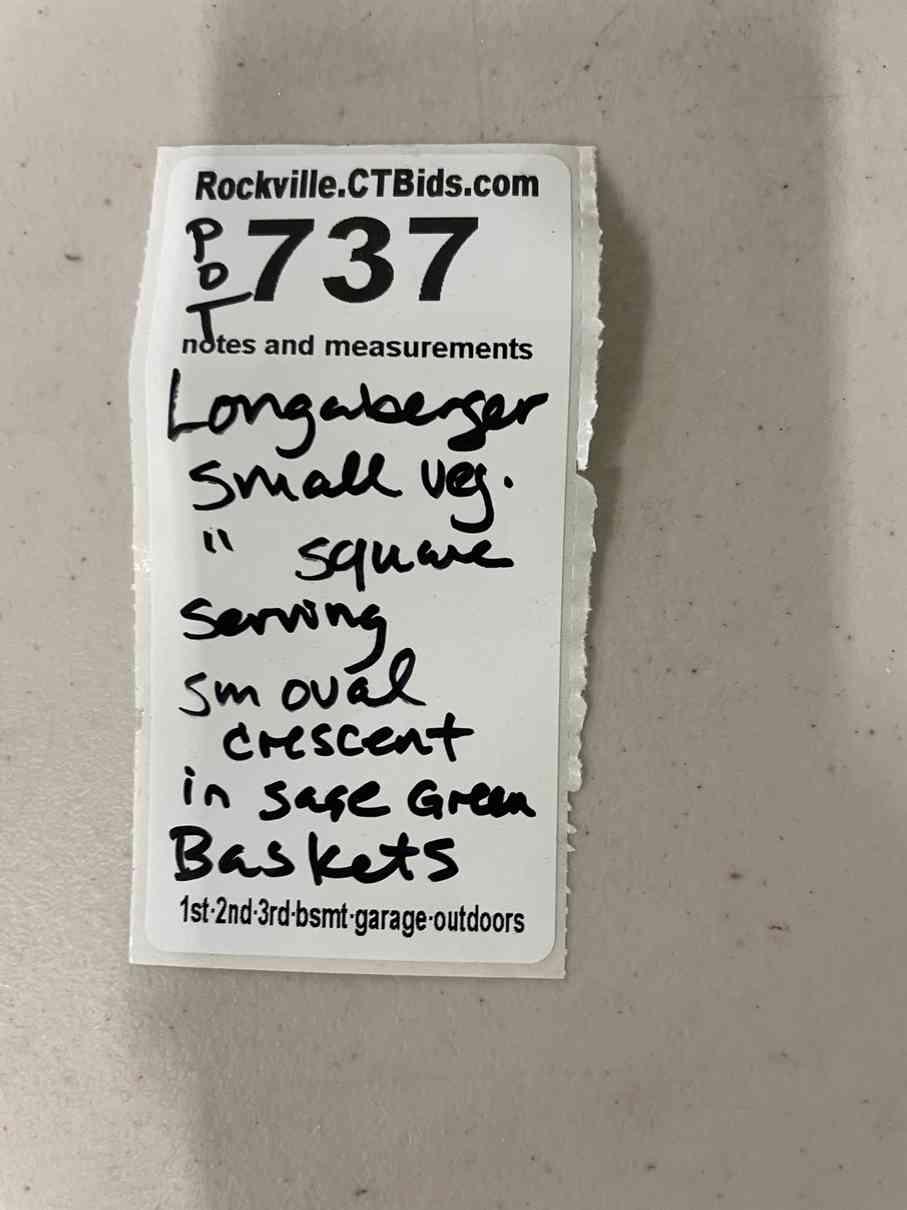 Rockville.CTBids.com
POT 737
notes and measurements
Longaberger
small veg.
" square
serving
sm oval
crescent
in sage Green
Baskets
1st·2nd·3rd·bsmt·garage·outdoors